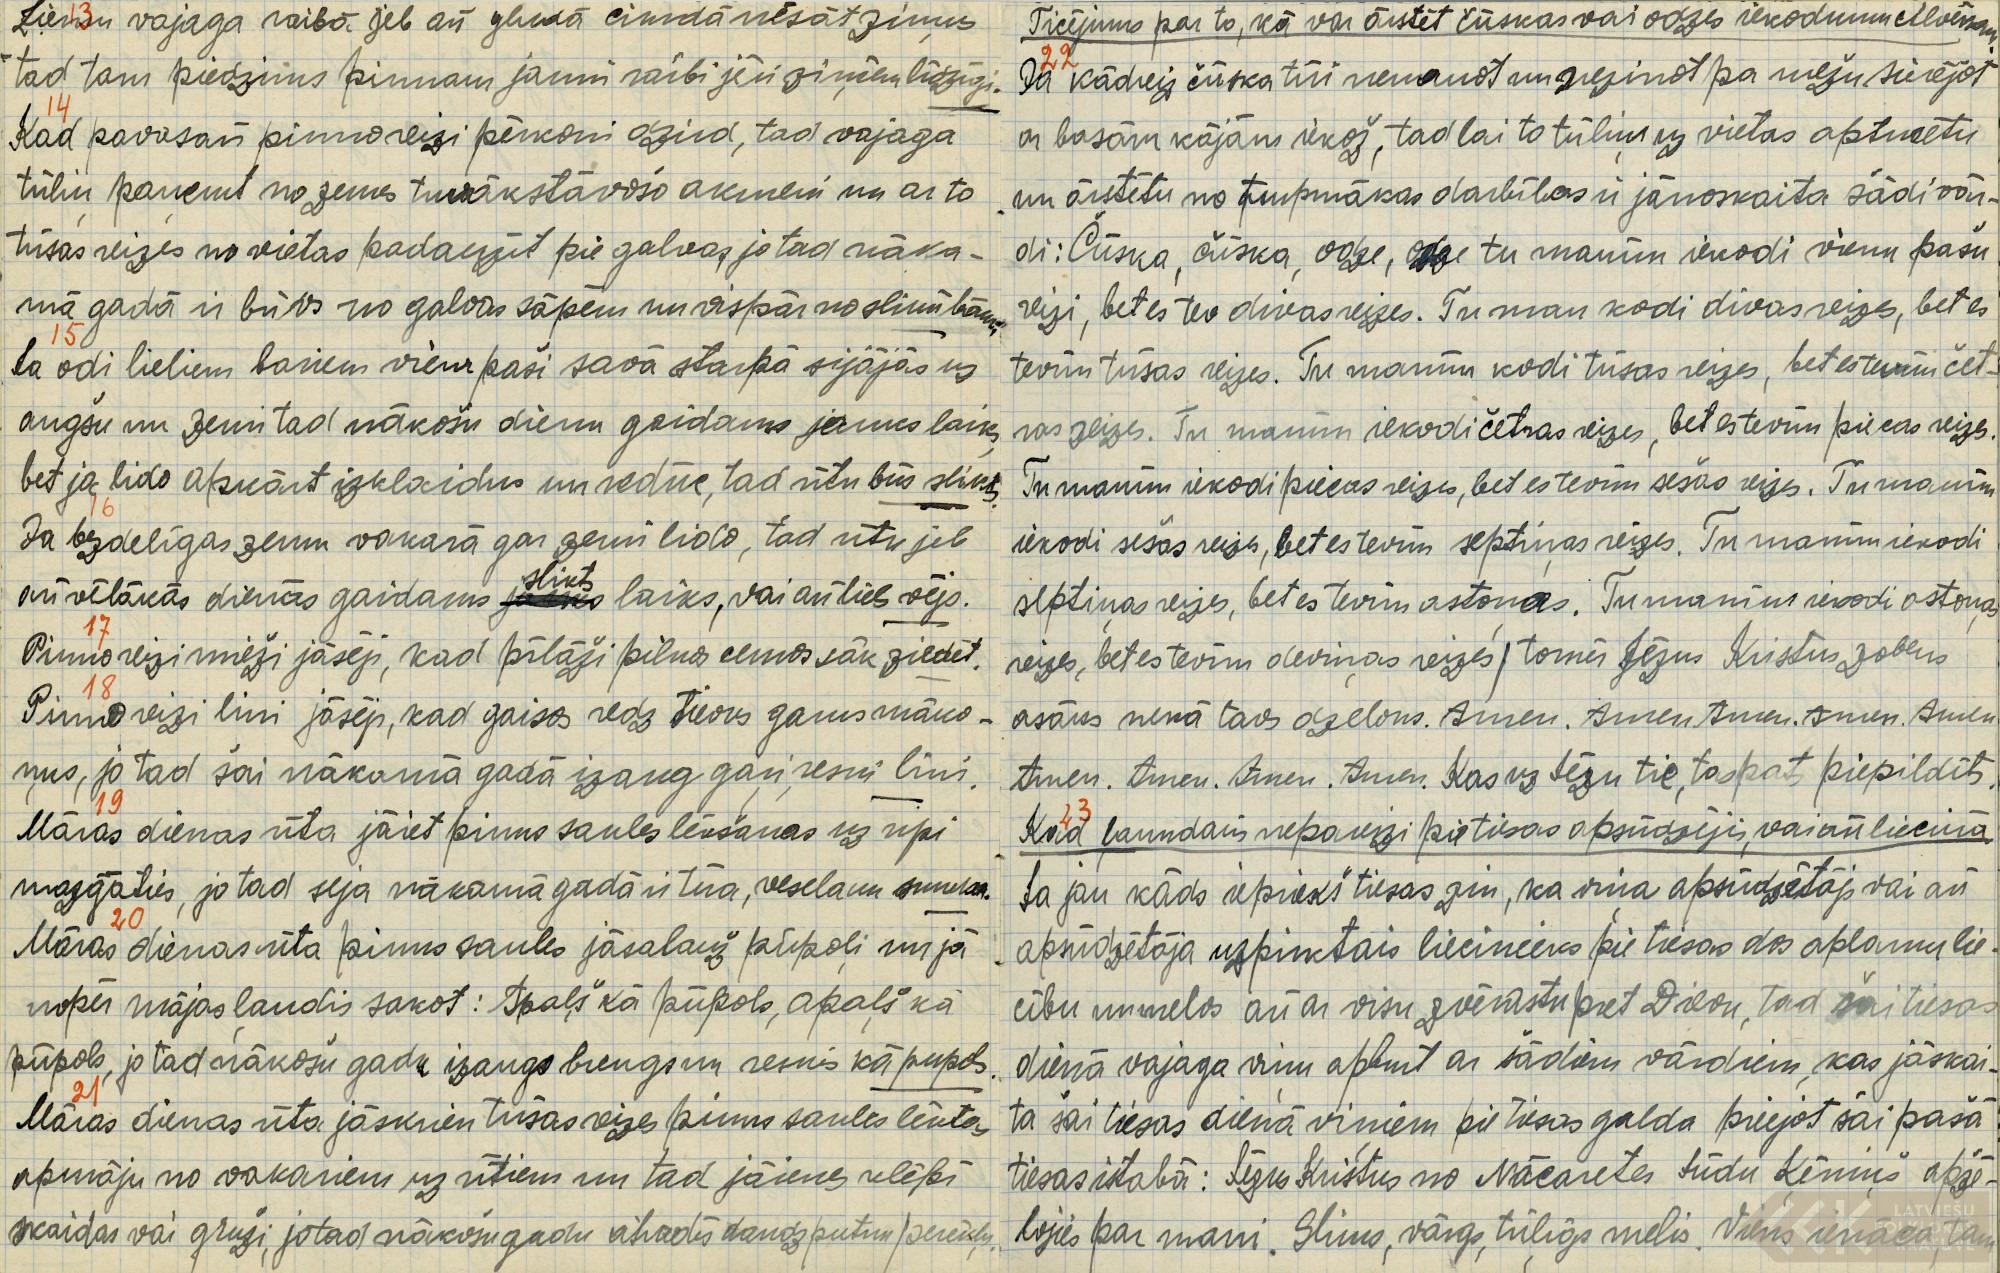 13
Ziemu vajaga raibā jeb arī gludā cimdā nēsāt zirņus
tad tam piedzims pirmam jauni raibi jēri zirņiem līdzīgi.
14
Kad pavasarī pirmo reizi pērkoni dzird, tad vajaga
tūliņ paņemt no zemes tuvāk stāvošo akmeni un ar to
trīsas reizes no vietas padauzīt pie galvas, jo tad nāka-
mā gadā ir brīvs no galvas sāpēm un vispār no slimībām.
15
Ja odi lieliem bariem vieni paši savā starpā sijājās uz
augšu un zemi tad nākošu dienu gaidams jauks laiks,
bet ja lido apkārt izklaidus un rēdūc, tad rītu būs slikts.
16
Ja bezdelīgas zemu vakarā gar zemi lido, tad rītu jeb
arī vēlākās dienās gaidams slikts laiks, vai arī liels vējs.
17
Pirmo reizi mieži jāsēj, kad pīlāži pilnos cemos sāk ziedēt.
18
Pirmo reizi lini jāsēj, kad gaisos redz tievus garus māko-
ņus, jo tad šai nākamā gadā izaug gaŗi, resni lini.
19
Māras dienas rīta jāiet pirms saules lēkšanas uz upi
mazgāties, jo tad seja nākamā gadā ir tīra, vesela un smuka.
20
Māras dienas rīta pirms saules jāsalauž pūpoļi un jā
noper mājas ļaudis sakot: Apaļš kā pūpols, apaļš kā
pūpols, jo tad nākošu gadu izaugs brengs un resnis kā pupols.
21
Māras dienas rīta jāskrien trīsas reizes pirms saules lēkta
ap māju no vakariem uz rītiem un tad jāienes klēpī
skaidas vai gruži, jo tad nākošu gadu atradīs daudz putnu perēkļu.
Ticējums par to, kā var ārstēt čūskas vai odzes iekodumu cilvēkam.
22
Ja kādreiz čūska tīri nemanot un nezinot pa mežu sierējot
ar basām kājām iekož, tad lai to tūliņ uz vietas apturētu
un ārstētu no turpmākas darbības ir jānoskaita šādi vār-
di: Čūska, čūska, odze, odze tu manim iekodi vienu pašu
reizi, bet es tev divas reizes. Tu man kodi divas reizes, bet es
tevim trīsas reizes. Tu manim kodi trīsas reizes, bet es tevim čet-
ras reizes. Tu manim iekodi četras reizes, bet es tevim piecas reizes.
Tu manim iekodi piecas reizes, bet es tevim sešas reizes. Tu manim
iekodi sešas reizes, bet es tevim septiņas reizes. Tu manim iekodi
septiņas reizes, bet es tevim astoņas. Tu manim iekodi astoņas
reizes, bet es tevim deviņas reizes, tomēr Jēzus Kristus zobens
asāks nekā tavs dzelons. Amen. Amen. Amen. Amen. Amen
Amen. Amen. Amen. Amen. Kas uz Jēzu tic, tas pats piepildīts.
23
Kad ļaundaris nepareizi pie tiesas apsūdzējis, vai arī liecinā
Ja jau kāds iepriekš tiesas zin, ka viņa apsūdzētājs vai arī
apsūdzētāja uzpirktais liecinieks pie tiesas dos aplamu lie-
cību un melos arī ar visu zvērastu pret Dievu, tad šai tiesas
dienā vajaga viņu apburt ar šādiem vārdiem, kas jāskai-
ta šai tiesas dienā viņiem pie tiesas galda pieejot šai pašā
tiesas istabā: Jēzus Kristus no Nācaretes Jūdu Ķēniņš apžē-
lojies par mani. Slims, vārgs, tūlīgs melis. Viens ienāca, tam
LATVIEŠU
FOLKLORAS
KRĀTUVE